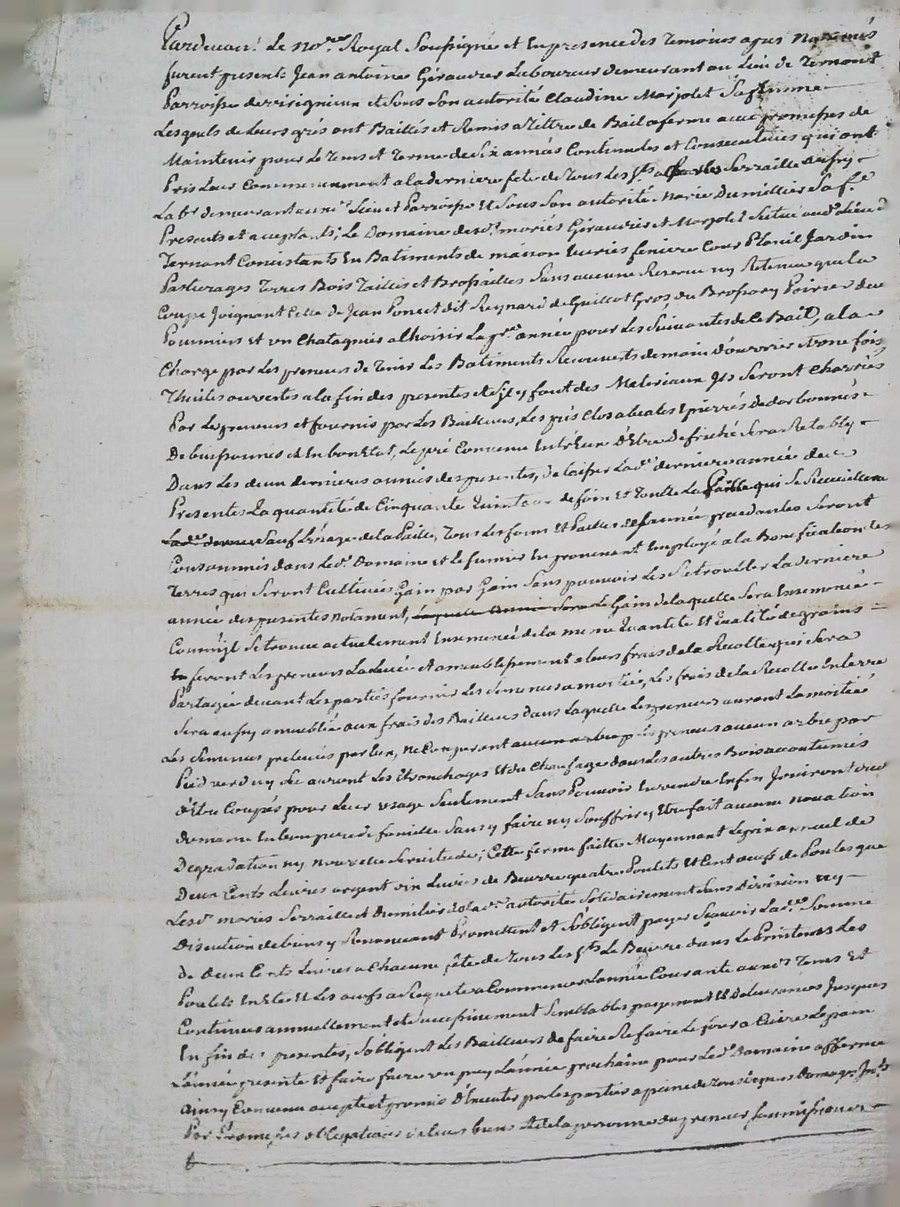 Pardevant Le no.re Royal Soussigné et En presence des Temoins apres Nommés
furent presents Jean antoine Giraurier Laboureur demeurant au Lieu de Ternant
Parroisse et Sous Son autorité Claudine Marjolet Sa femme
Lesquels de Leurs grés ont Baillés et Remis a Tittre de Bail a ferme avec promesses de
Maintenir pour Le Tems et Terme de Six années Continues et Consecutives qui ont
Pris Leur Commencement a la derniere fete de Tous les Sts a Serraille aussy
Lab.r demeurant audit Lieu et Parroisse Et Sous Son autorité Marie Dumillier Sa f.e
Presents et acceptants; Le Domaine desd. mariés Giraurier et Marjolet Situé aud. Lieu de
Ternant Consistants En Batiments de maison Ecuries feniere Cour Jardin
Pasturages Terres Bois Taillis et Brossailles Sans aucune Reserve ny Retenue que la
Coupe Joignant Celle de Jean Poncet dit Reynard de Guillot Gros du Brossory Poirier deux
Pommiers et un Chatagnier a Choisir La année pour Les Suivantes de Ce Bail, a la
Charge par Les preneurs de Tenir Les Batiments Recouverts de main d'ouvrier et une fois
Thuiles ouvertes a la fin des presentes et S'il y faut des Materiaux Ils Seront Charriés
Par Les preneurs et fournis par Les Bailleurs, Les prés Clos
De buissonnes et En bon Etat, Le pré Convenu Entr'Eux d'Etre defriché Sera Retably
Dans Les deux dernieres années des presentes, de laisser Lad.e derniere année de
Presentes La quantité de Cinquante quintaux de foin et Toutte La Paille qui Se Recueillera
Sauf L'usage de la Paille, Tous Les foins Et Pailles de l'année precedantes Seront
Consommés dans Led. Domaine et Le fumier En provenant Employé a la Bonification des
Terres qui Seront Cultivées Gain par Gain Sans pouvoir Les Retroubler La derniere
année des presentes notament, Le Gain de laquelle Sera Ensemencé
Comm'il Se trouve actuellement Ensemencé de la meme quantité Et qualité de grains
feront Les preneurs La Levée et ameublissement a leurs frais de la Recolte qui Sera
Partagée devant Les parties fournir Les Semences a moitié, Les frais de la Recolte En terre
Sera aussy ameublée aux frais des Bailleurs dans Laquelle Les preneurs auront La moitié
Les Semences prelevées par Eux, ne Couperont Les preneurs aucun arbre par
Pied verd ny Sec auront Les Etronchages Et du Chauffage dans Les autres Bois accoutumés
d'Etre Coupés pour Leur usage Seulement Sans Pouvoir En vendre Enfin Jouiront dud.
domaine En bon pere de famille Sans y faire ny Souffrir y Etre fait aucune novation
Degradation ny nouvelle Servitude; Cette ferme faitte Moyennant Le prix annuel de
Deux Cents Livres argent vin Livres de Beurre quatre Poulets Et Cent oeufs de Poules que
Lesd. mariés Serraille et Dumilier de lad.e autorité Solidairement Sans division ny
Discution de biens y Renonceant Promettent et S'obligent payer Scavoir Lad.e Somme
de deux Cents Livres a Chacune fête de Tous Les Sts Le Beurre dans Le Printems Les
Poulets En Eté Et Les oeufs a Requete a Commencer L'année Courante auxd. Tems Et
Continuer annuellement Semblables payement Et delivrances Jusques
En fin des presentes, S'obligent Les Bailleurs de faire Refaire Le four a Cuire Le pain
L'année presente Et faire faire un puy L'année prochaine pour Led. Domaine affermé
Ainsy Convenu accepté et promis d'Executer par Les parties a peine de Tous depens Domages Int.ts
Par Promesses obligations de leurs biens Et de la personne du preneur Soumissions